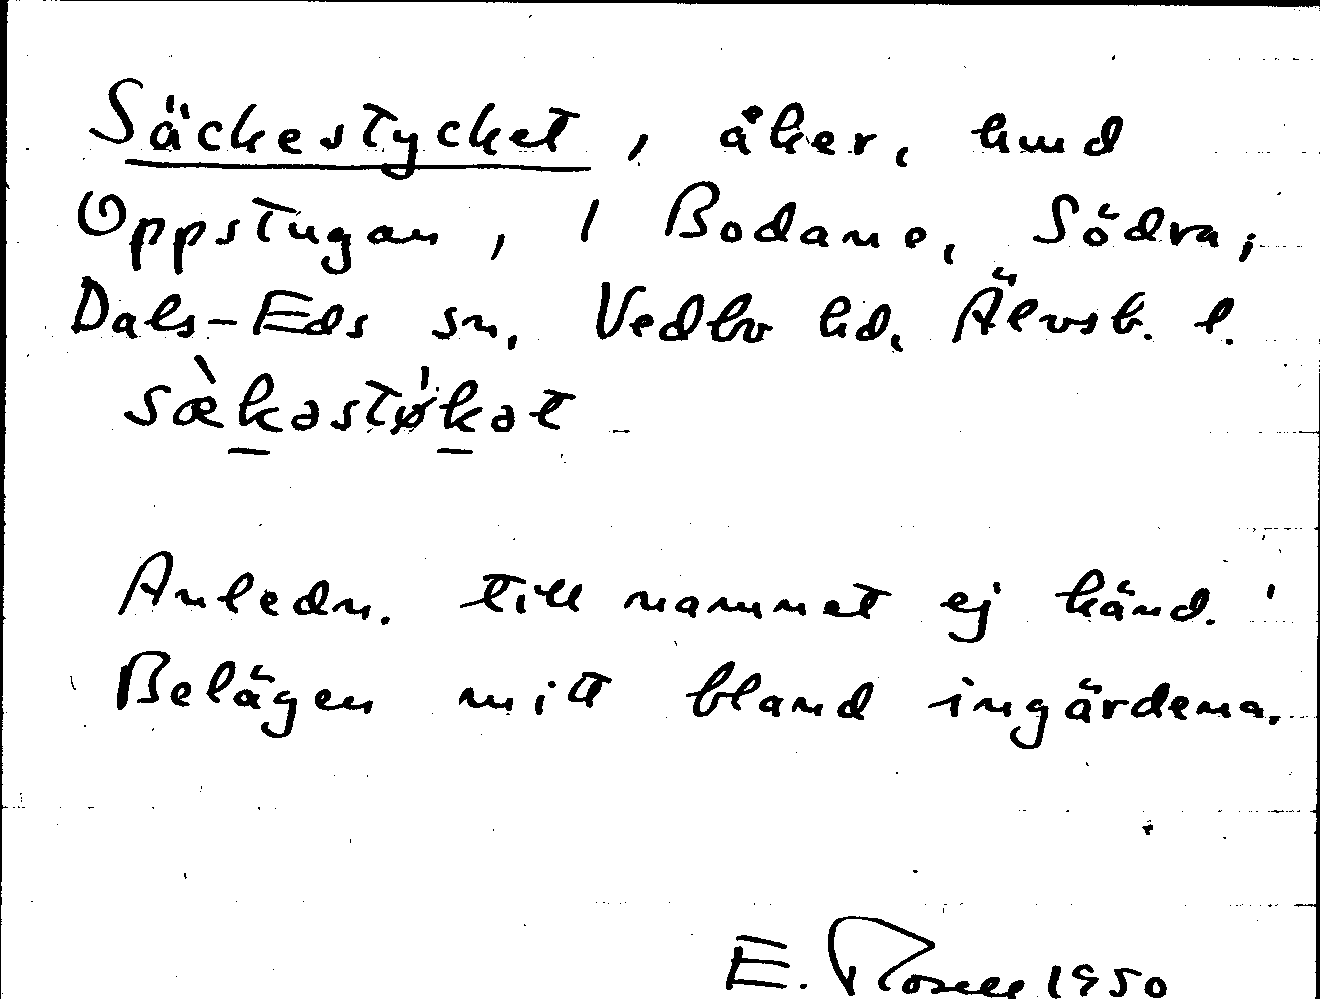 Säckestycket, åker, und
Oppstugan, 1 Bodane, Södra,
Dals-Eds sn, Vedbo hd, Älvsb. l.
sæ̀kəstø̍kət
Anledn. till namnet ej känd.
Belägen mitt bland ingärdena.
E. Rosell 1950